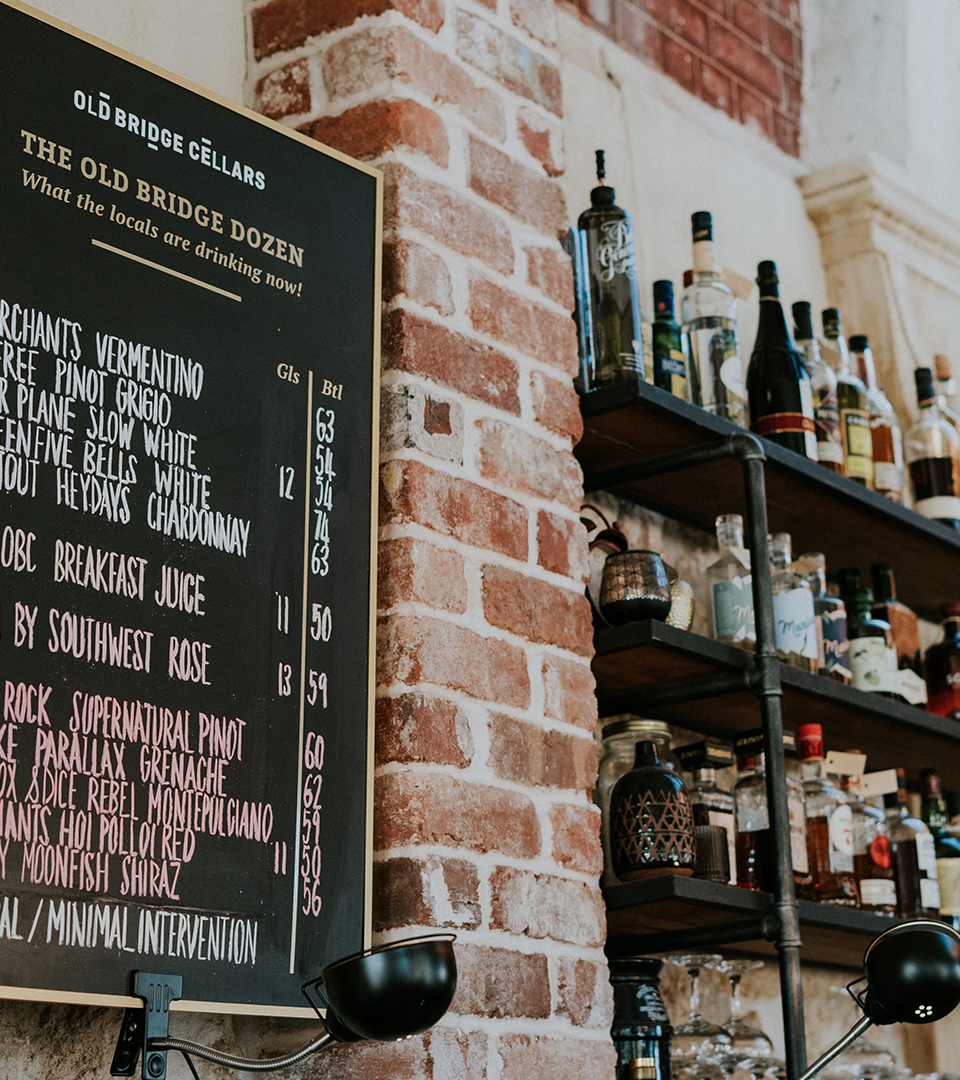 OLD BRIDGE CELLARS
THE OLD BRIDGE DOZEN
What the locals are drinking now!
Gls Btl
RCHANTS VERMENTINO 63
FREE PINOT GRIGIO 54
R PLANE SLOW WHITE 12 54
EEN FIVE BELLS WHITE 74
TOUT HEYDAYS CHARDONNAY 63
OBC BREAKFAST JUICE 11 50
BY SOUTHWEST ROSE 13 59
ROCK SUPERNATURAL PINOT 60
KE PARALLAX GRENACHE 62
OX & DICE REBEL MONTEPULCIANO 59
HANTS HOI POLLOI RED 11 50
Y MOONFISH SHIRAZ 56
AL / MINIMAL INTERVENTION